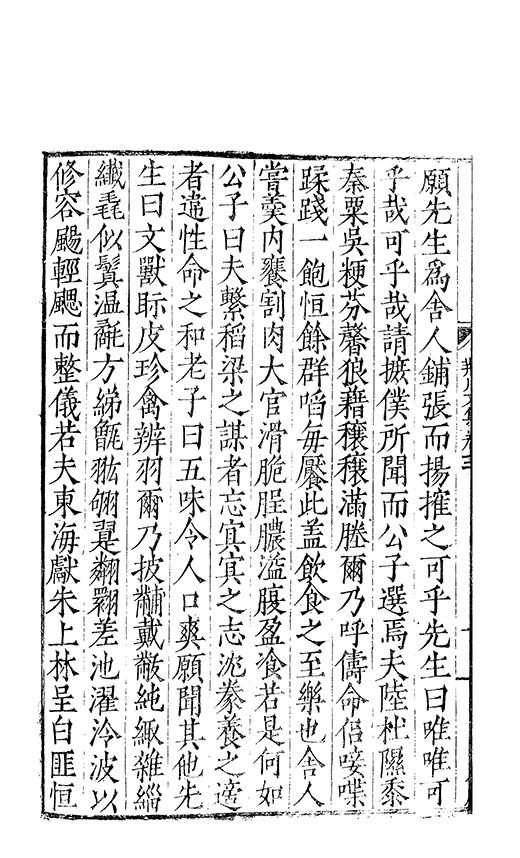 願先生爲舍人鋪張而揚搉之可乎先生曰唯唯可
乎哉可乎哉請摭僕所聞而公子選焉夫陸杜隰黍
秦粟吳粳芬馨狼藉穰穰滿塍爾乃呼儔命侶唼喋
蹂踐一飽恒餘群啗每饜此盖飲食之至樂也舍人
嘗羹内饔割肉大官滑脆腥膿溢腹盈飡若是何如
公子曰夫繫稻梁之謀者忘寘寘之志沲豢養之
者違性命之和老子曰五味令人口爽願聞其他先
生曰文獸眎皮珍禽辨羽爾乃披黼戴黻純緅雜緇
纖毳似鬒温毹方綈氍翃翩翾差池濯泠波以
修容颺輕颸而整儀若夫東海獻朱上林呈白匪恒
荆川文集卷三